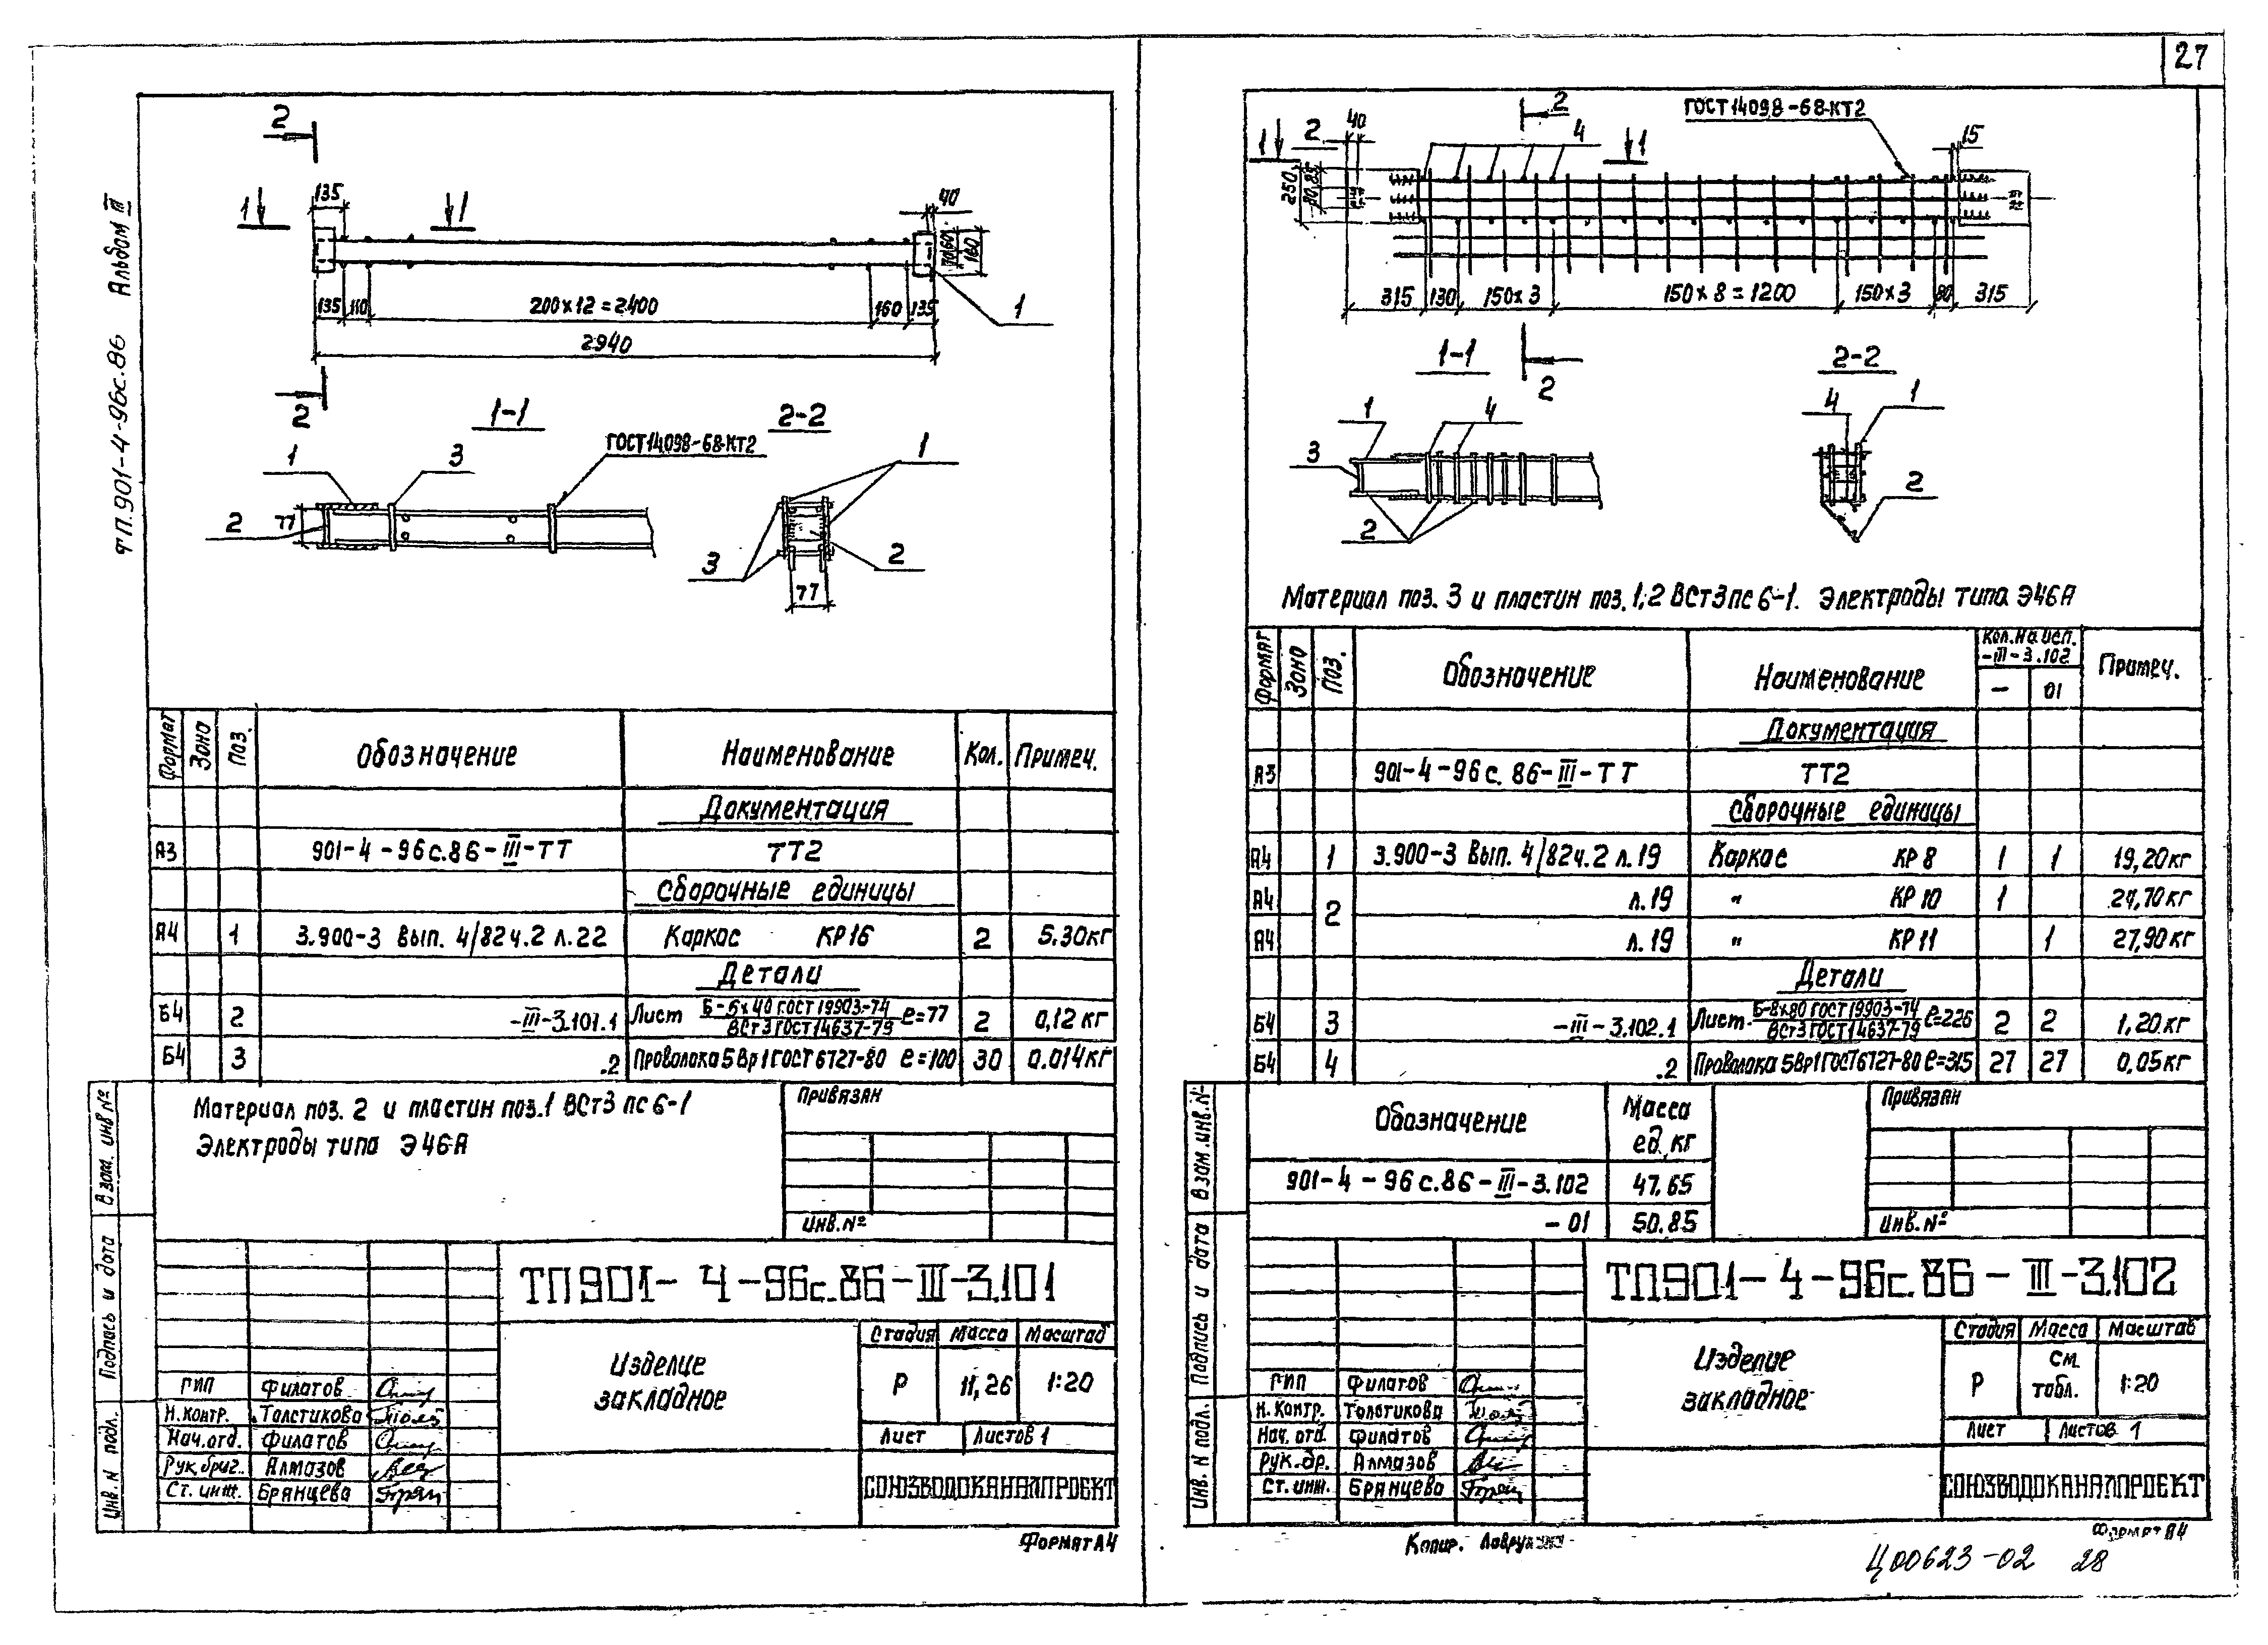 27
ТП.901-4-96с.86 Альбом III
2
135
1
1
40
10,60
160
135
110
200×12=2400
160
135
1
2940
2
1-1
2-2
ГОСТ14098-68-КТ2
1
3
1
2
77
3
2
77
Формат
Зона
Поз.
Обозначение
Наименование
Кол.
Примеч.
Документация
А3 901-4-96с.86-III-ТТ ТТ2
Сборочные единицы
А4 1 3.900-3 Вып. 4/82ч.2 л.22 Каркас КР16 2 5.30кг
Детали
Б4 2 -III-3.101.1 Лист Б-5х40 ГОСТ 19903-74 / ВСт3 ГОСТ 14637-79 ℓ=77 2 0,12 кг
Б4 3 .2 Проволока 5Вр1 ГОСТ 6727-80 ℓ=100 30 0.014кг
Материал поз. 2 и пластин поз.1 ВСт3 пс 6-1
Электроды типа Э46А
Привязан
Инв.№
Взам. инв №
Подпись и дата
Инв. N подл.
ТП901-4-96с.86-III-3.101
Изделие
закладное
Стадия Масса Масштаб
Р 11,26 1:20
Лист Листов 1
ГИП Филатов
Н.контр. Толстикова
Нач.отд. Филатов
Рук.бриг. Алмазов
Ст. инж. Брянцева
СОЮЗВОДОКАНАЛПРОЕКТ
Формат А4
2
ГОСТ14098-68-КТ2
40
2
4
1
1
15
250
315
130
150×3
150×8=1200
150×3
80
315
1-1
2
2-2
1
4
4
1
3
2
2
Материал поз. 3 и пластин поз. 1,2 ВСт3пс 6-1. Электроды типа Э46А
Формат
Зона
Поз.
Обозначение
Наименование
Кол. на исп.
-III-3.102
- 01
Примеч.
Документация
А3 901-4-96с.86-III-ТТ ТТ2
Сборочные единицы
А4 1 3.900-3 Вып. 4/82ч.2 л.19 Каркас КР 8 1 1 19,20кг
А4 2 л.19 " КР 10 1 24,70кг
А4 л.19 " КР 11 1 27,90кг
Детали
Б4 3 -III-3.102.1 Лист Б-8х80 ГОСТ 19903-74 / ВСт3 ГОСТ 14637-79 ℓ=226 2 2 1,20кг
Б4 4 .2 Проволока 5Вр1 ГОСТ 6727-80 ℓ=315 27 27 0,05кг
Обозначение
Масса
ед,кг
901-4-96с.86-III-3.102 47.65
-01 50.85
Привязан
Инв.№
Взам. инв. №
Подпись и дата
Инв. N подл.
ТП901-4-96с.86-III-3.102
Изделие
закладное
Стадия Масса Масштаб
Р См. табл. 1:20
Лист Листов 1
ГИП Филатов
Н.контр. Толстикова
Нач. отд Филатов
Рук.др. Алмазов
Ст.инж. Брянцева
СОЮЗВОДОКАНАЛПРОЕКТ
Копир.
Формат А4
Ц00623-02 28